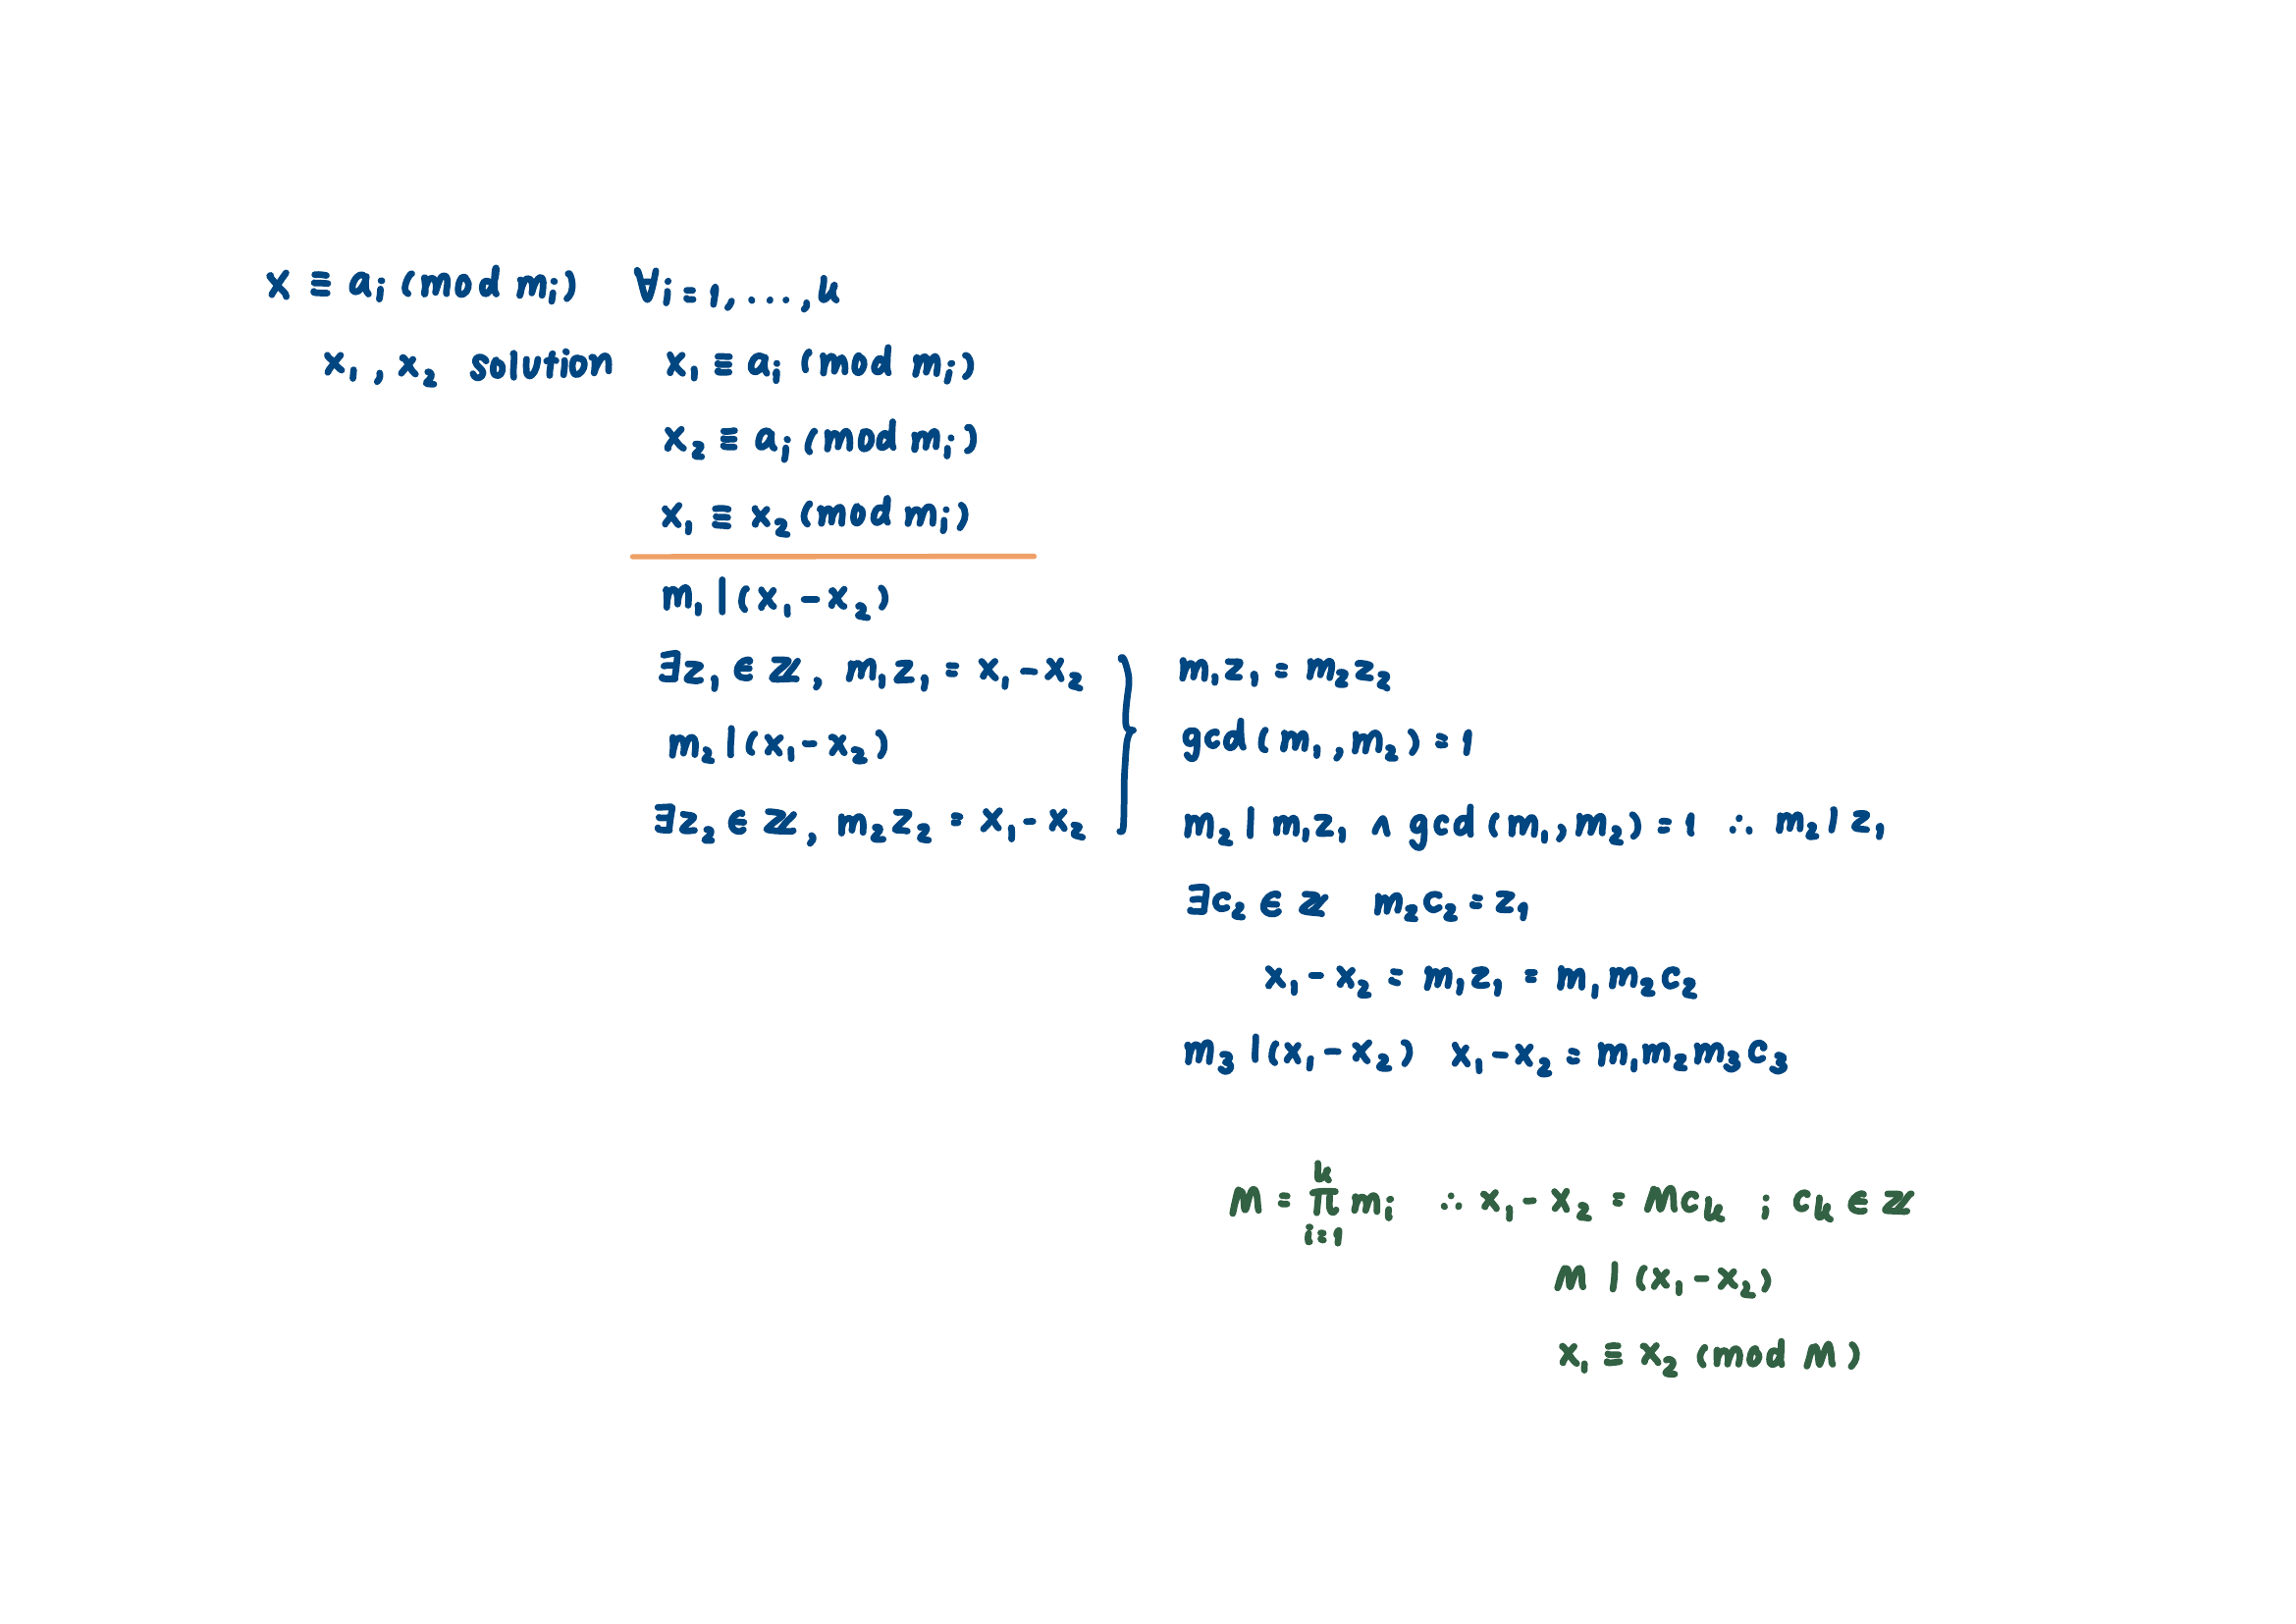 x ≡ aᵢ (mod mᵢ) ∀i = 1, ..., k
x₁, x₂ solution x₁ ≡ aᵢ (mod mᵢ)
x₂ ≡ aᵢ (mod mᵢ)
x₁ ≡ x₂ (mod mᵢ)
m₁ | (x₁ - x₂)
∃z₁ ∈ ℤ, m₁z₁ = x₁ - x₂
m₂ | (x₁ - x₂)
∃z₂ ∈ ℤ, m₂z₂ = x₁ - x₂
m₁z₁ = m₂z₂
gcd(m₁, m₂) = 1
m₂ | m₁z₁ ∧ gcd(m₁, m₂) = 1 ∴ m₂ | z₁
∃c₂ ∈ ℤ m₂c₂ = z₁
x₁ - x₂ = m₁z₁ = m₁m₂c₂
m₃ | (x₁ - x₂) x₁ - x₂ = m₁m₂m₃c₃
M = ∏ᵢ₌₁ᵏ mᵢ ∴ x₁ - x₂ = Mcₖ ; cₖ ∈ ℤ
M | (x₁ - x₂)
x₁ ≡ x₂ (mod M)